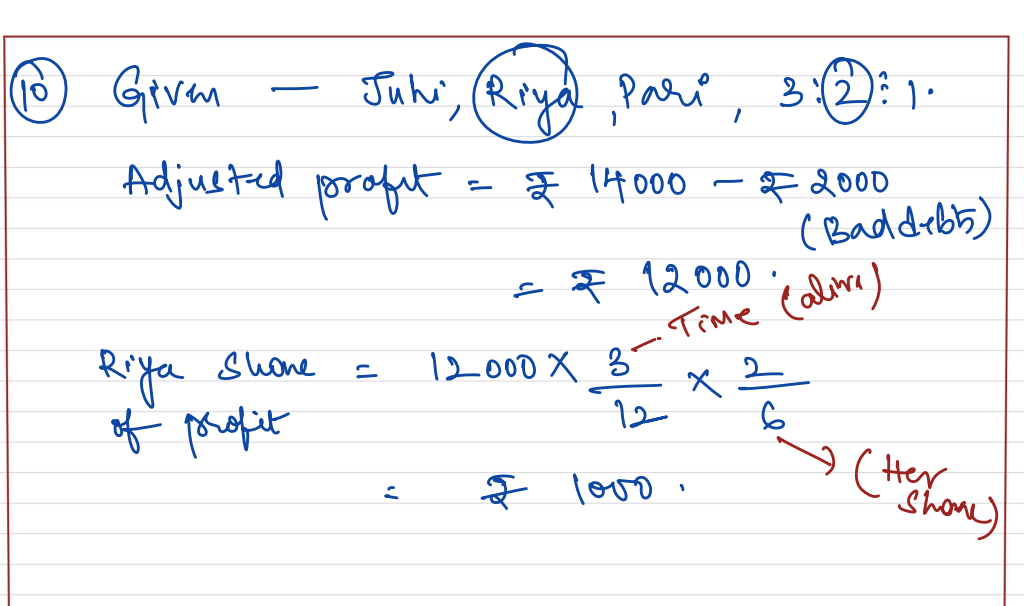 10 Given — Juhi, Riya, Pari, 3:2:1.
Adjusted profit = ₹ 14000 - ₹ 2000
(Bad debts)
= ₹ 12000.
Time (alive)
Riya Share = 12000 × 3/12 × 2/6
of profit
(Her Share)
= ₹ 1000.